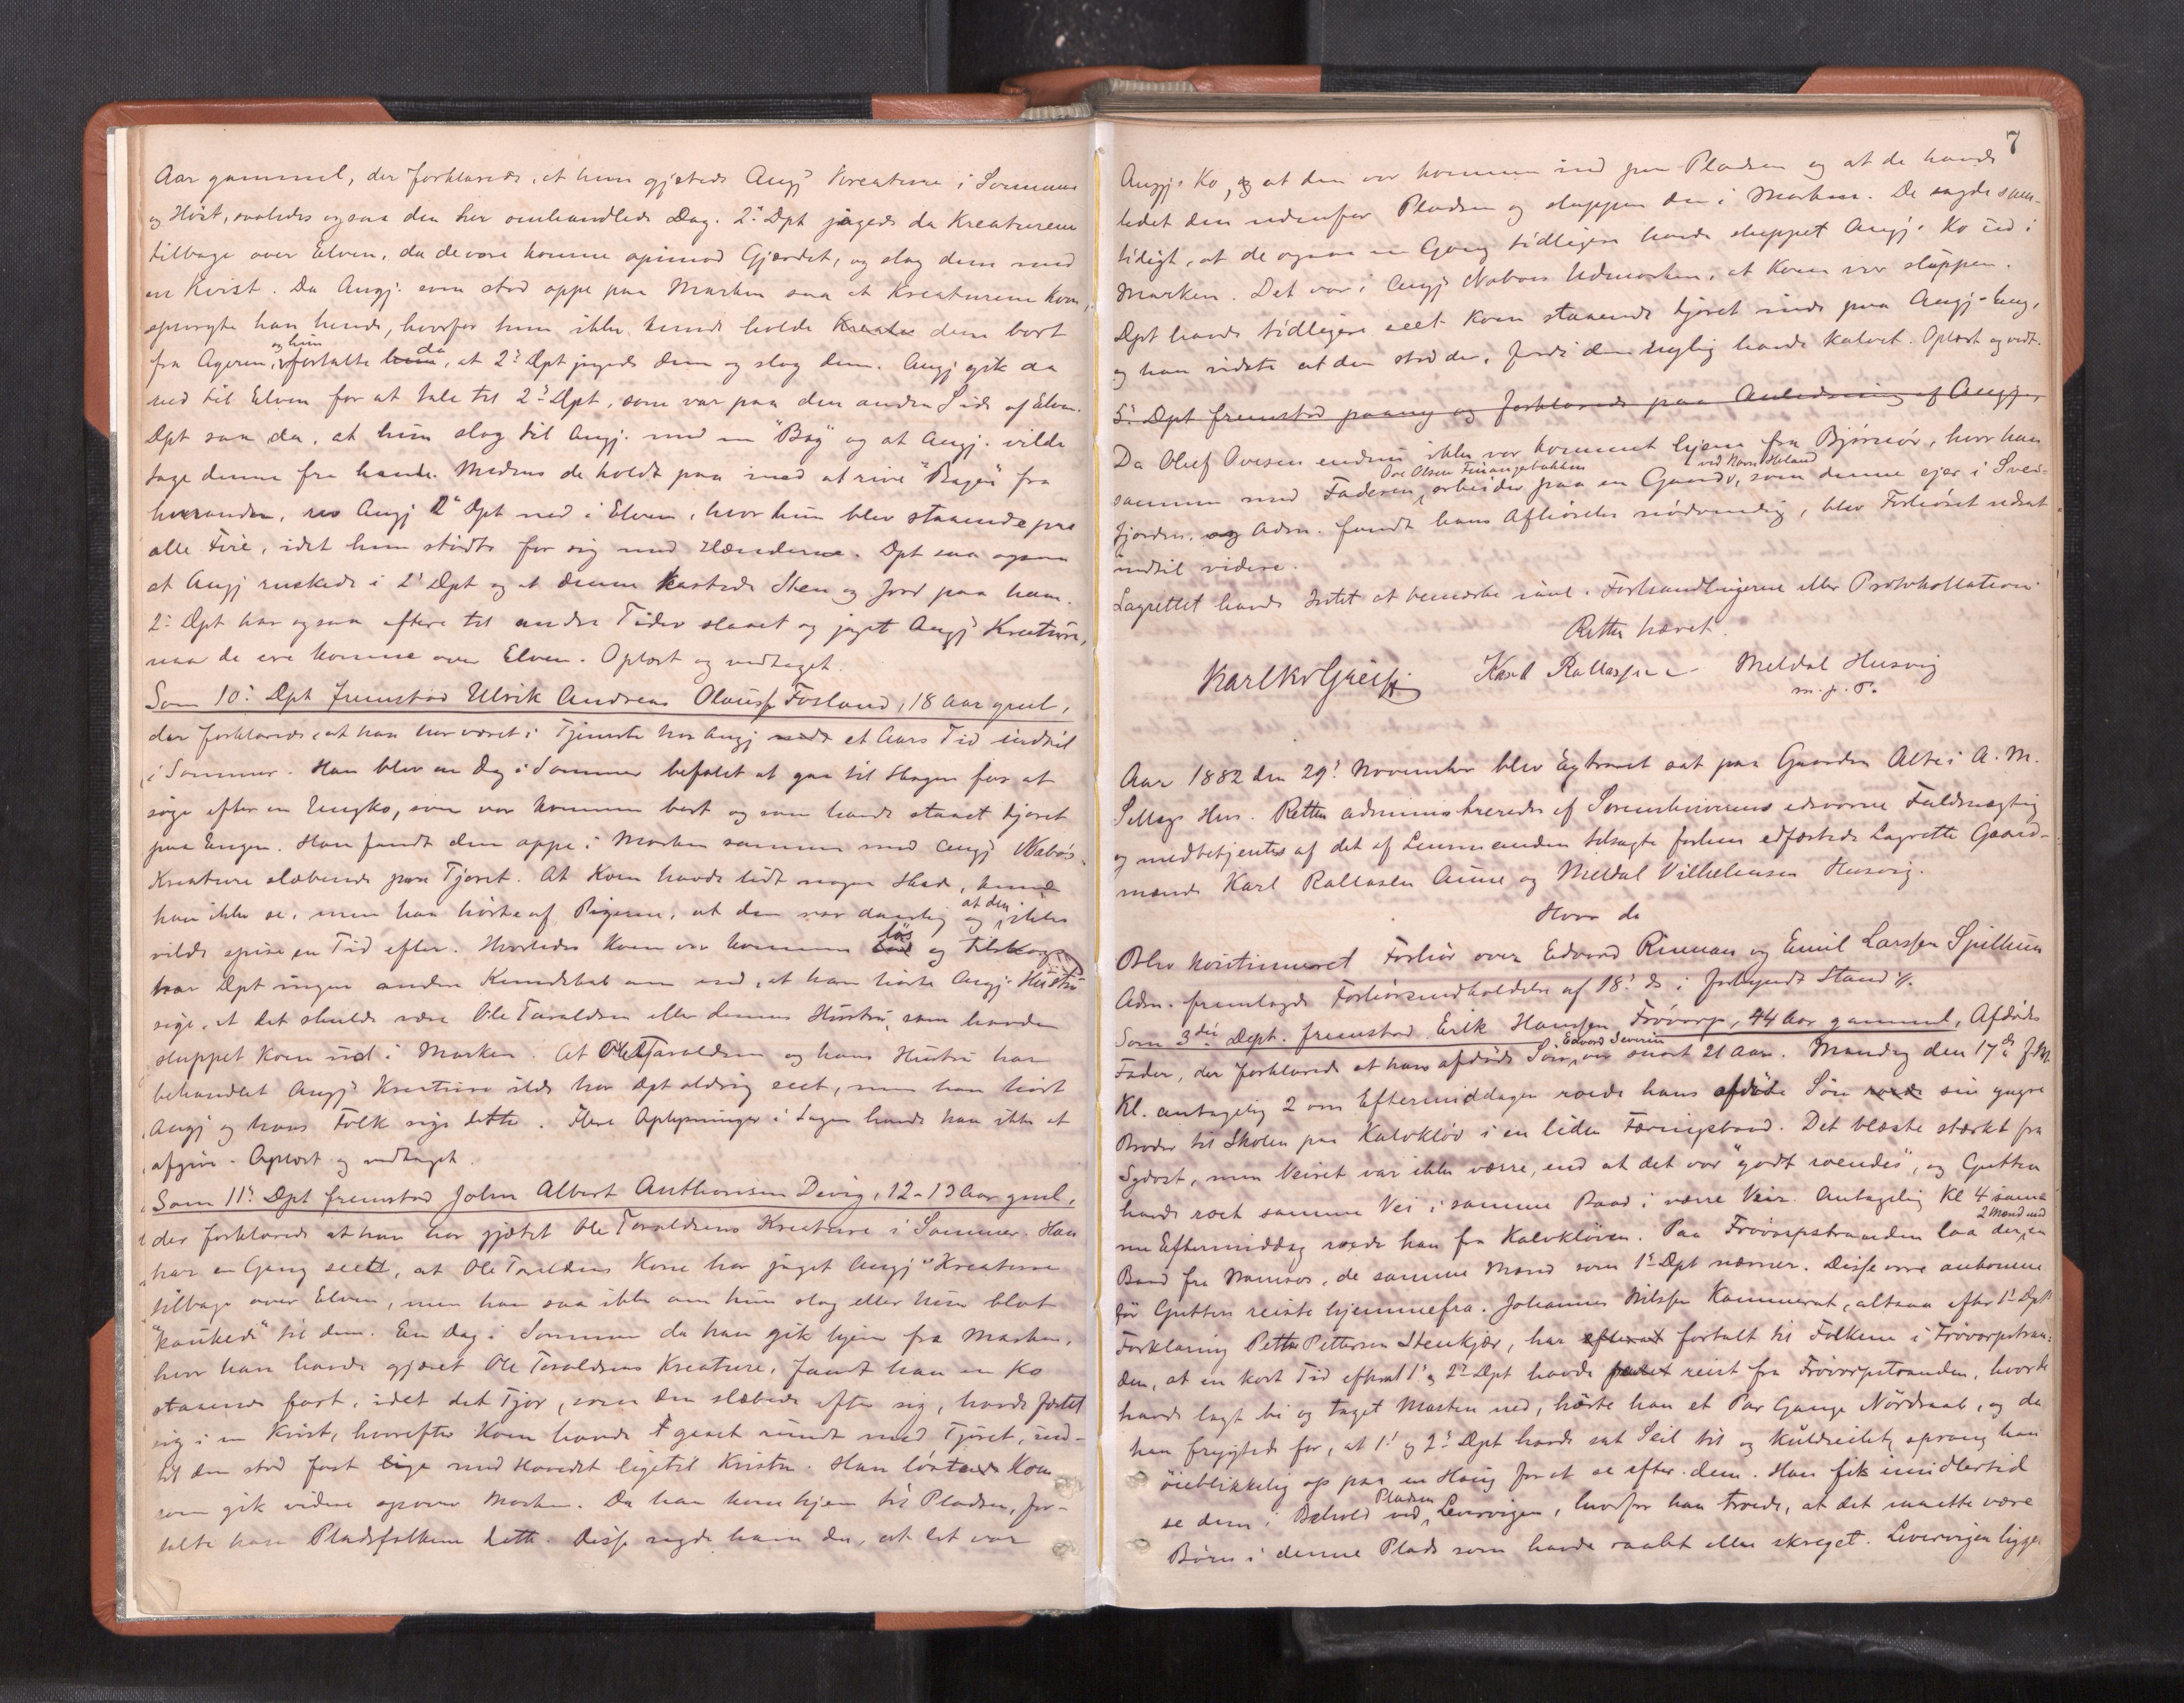 Aar gammel, der forklarede, at hun gjætede Angj. Kreature i Sommer
og Høst, saaledes ogsaa den her omhandlede Dag. 2. Dpt jagede da Kreaturene
tilbage over Elven, da de vare komne opimod Gjærdet, og slog dem med
en Kvist. Da Angj. som stod oppe paa Marken saa at Kreaturene kom,
spurgte han hende, hvorfor hun ikke kunde holde Kreatu dem bort
fra Ageren, og hun fortalte hun da, at 2. Dpt jagede dem og slog dem. Angj gik da
ned til Elven for at tale til 2. Dpt, som var paa den anden Side af Elven.
Dpt saa da, at hun slog til Angj. med en "Bag" og at Angj. vilde
tage denne fra hende. Medens de holdt paa med at rive "Bagen" fra
hverandre, rev Angj 2. Dpt ned i Elven, hvor hun blev staaende paa
alle Fire, idet hun stødte for sig med Hænderne. Dpt saa ogsaa
at Angj ruskede i 2. Dpt og at denne kastede Sten og Jord paa ham.
2. Dpt har ogsaa oftere til andre Tider slaaet og jaget Angj Kreature,
naar de ere komne over Elven. Oplæst og vedtaget.
Som 10. Dpt fremstod Ulrik Andreas Olaussen Fosland, 18 Aar gml,
der forklarede, at han har været i Tjeneste hos Angj et Aars Tid indtil
i Sommer. Han blev en Dag i Sommer befalet at gaa til Skogen for at
søge efter en Ungko, som var kommen bort og som havde staaet tjoret
paa Engen. Han fandt den oppe i Marken sammen med Angj Nabos
Kreature slæbende paa Tjoret. At Koen havde lidt nogen Skade, kunde
han ikke se, men han hørte af Pigerne, at den var daarlig og at den ikke
vilde spise en Tid efter. Hvorledes Koen var kommen løs og tilskogs
har Dpt ingen anden Kundskab om end, at han hørte Angj. Hustru
sige, at det skulde være Ole Taraldsen eller dennes Hustru, som havde
sluppet Koen ud i Marken. At Ole Taraldsen og hans Hustru har
behandlet Angj Kreature ilde har Dpt aldrig seet, men han hørt
Angj og hans Folk sige dette. Flere Oplysninger i Sagen havde han ikke at
afgive. Oplæst og vedtaget.
Som 11. Dpt fremstod John Albert Anthonisen Devig, 12-13 Aar gml,
der forklarede at han har gjætet Ole Taraldsens Kreature i Sommer. Han
har en Gang seet, at Ole Taraldsens Kone har jaget Angj Kreature
tilbage over Elven, men han saa ikke om hun slog eller hun blot
"haukede" til dem. En Dag i Sommer da han gik hjem fra Marken,
hvor han havde gjætet Ole Taraldsens Kreature, fandt han en Ko
staaende fast, idet det Tjor, som den slæbede efter sig, havde fæstet
sig i en Kvist, hvorefter Koen havde gaaet rundt med Tjoret, ind-
til den stod fast lige med Hovedet ligetil Kvisten. Han løste Koen
som gik videre opover Marken. Da han kom hjem til Pladsen, for-
talte han Pladsfolkene dette. Disse sagde ham da, at det var
7
Angj. Ko, og at den var kommen ind paa Pladsen og at de havde
ledet den udenfor Pladsen og sluppen den i Marken. De sagde sam-
tidigt, at de ogsaa en Gang tidligere havde sluppet Angj. Ko ud i
Marken. Det var i Angj Nabos Udmarken, at Koen var sluppen.
Dpt havde tidligere seet Koen staaende tjoret inde paa Angj. Eng,
og han vidste at den stod der, fordi den nylig havde kalvet. Oplæst og vedt.
5. Dpt fremstod paany og forklarede paa Anledning af Angj.,
Da Oluf Ovesen endnu ikke var kommet hjem fra Bjørnør, hvor han
sammen med Faderen, Ove Olsen Finangerbakken arbeider paa en Gaard, ved Navn Heland som denne ejer i Svei-
fjorden, og Adm. fandt hans Afhørelse nødvendig, blev Forhøret udsat
indtil videre.
Lagrettet havde Intet at bemærke imod Forhandlingerne eller Protokollationen.
Retten hævet.
Karl Rallassen Meldal Husvig
m. p. P.
Aar 1882 den 29. November blev Extraret sat paa Gaarden Alte i A. M.
Sellægs Hus. Retten administreredes af Sorenskriverens edsvorne Fuldmægtig
og medbetjentes af det af Lensmanden tilsagte forhen edfæstede Lagrette Gaard-
mænd Karl Rallassen Aune og Meldal Vilhelmsen Husvig.
Hvor da
Blev kontinueret Forhør over Edvard Rinnan og Emil Larssen Spillum
Adm. fremlagde Forhørsindkaldelse af 18. ds i forkyndt Stand.
Som 3die Dept. fremstod Erik Hanssen Frøvarp, 44 Aar gammel, Afdødes
Fader, der forklarede at hans afdøde Søn, Edvard Severin var snart 21 Aar. Mandag den 17de f.M.
Kl. antagelig 2 om Eftermiddagen roede hans afdøde Søn roede sin yngre
Broder til Skolen paa Kalvkløv i en liden Færingsbaad. Det blæste stærkt fra
Sydost, men Veiret var ikke værre, end at det var "godt roendes", og Gutten
havde roet samme Vei i samme Baad i værre Veir. Antagelig Kl 4 sam-
me Eftermiddag roede han fra Kalvkløven. Paa Frøvarpstranden laa der 2 Mænd med en
Baad fra Namsos, de samme Mænd som 1. Dpt nævner. Disse vare ankomne
før Gutten reiste hjemmefra. Johannes Nilssen Kammerat, altsaa efter 1. Dpts
Forklaring Petter Pettersen Stenkjær, har efterat fortalt til Folkene i Frøvarpstran-
den, at en kort Tid efterat 1. og 2. Dpt havde reist fra Frøvarpstranden, hvor de
havde lagt bi og taget Masten ned, hørte han et Par Gange Nødraab, og da
han frygtede for, at 1. og 2. Dpt havde sat Seil til og kuldseilet, sprang han
øieblikkelig op paa en Haug for at se efter dem. Han fik imidlertid
se dem i Behold ved Pladsen Levervigen, hvorfor han troede, at det maatte være
Børn i denne Plads som havde raabt eller skreget. Levervigen ligger